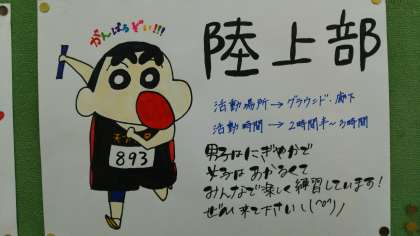 がんばるぞい!!!
陸上部
活動場所→グラウンド・廊下
活動時間→2時間半~3時間
893
男子はにぎやかで
女子はあかるくて
みんなで楽しく練習しています!
ぜひ来て下さい \(^o^)/